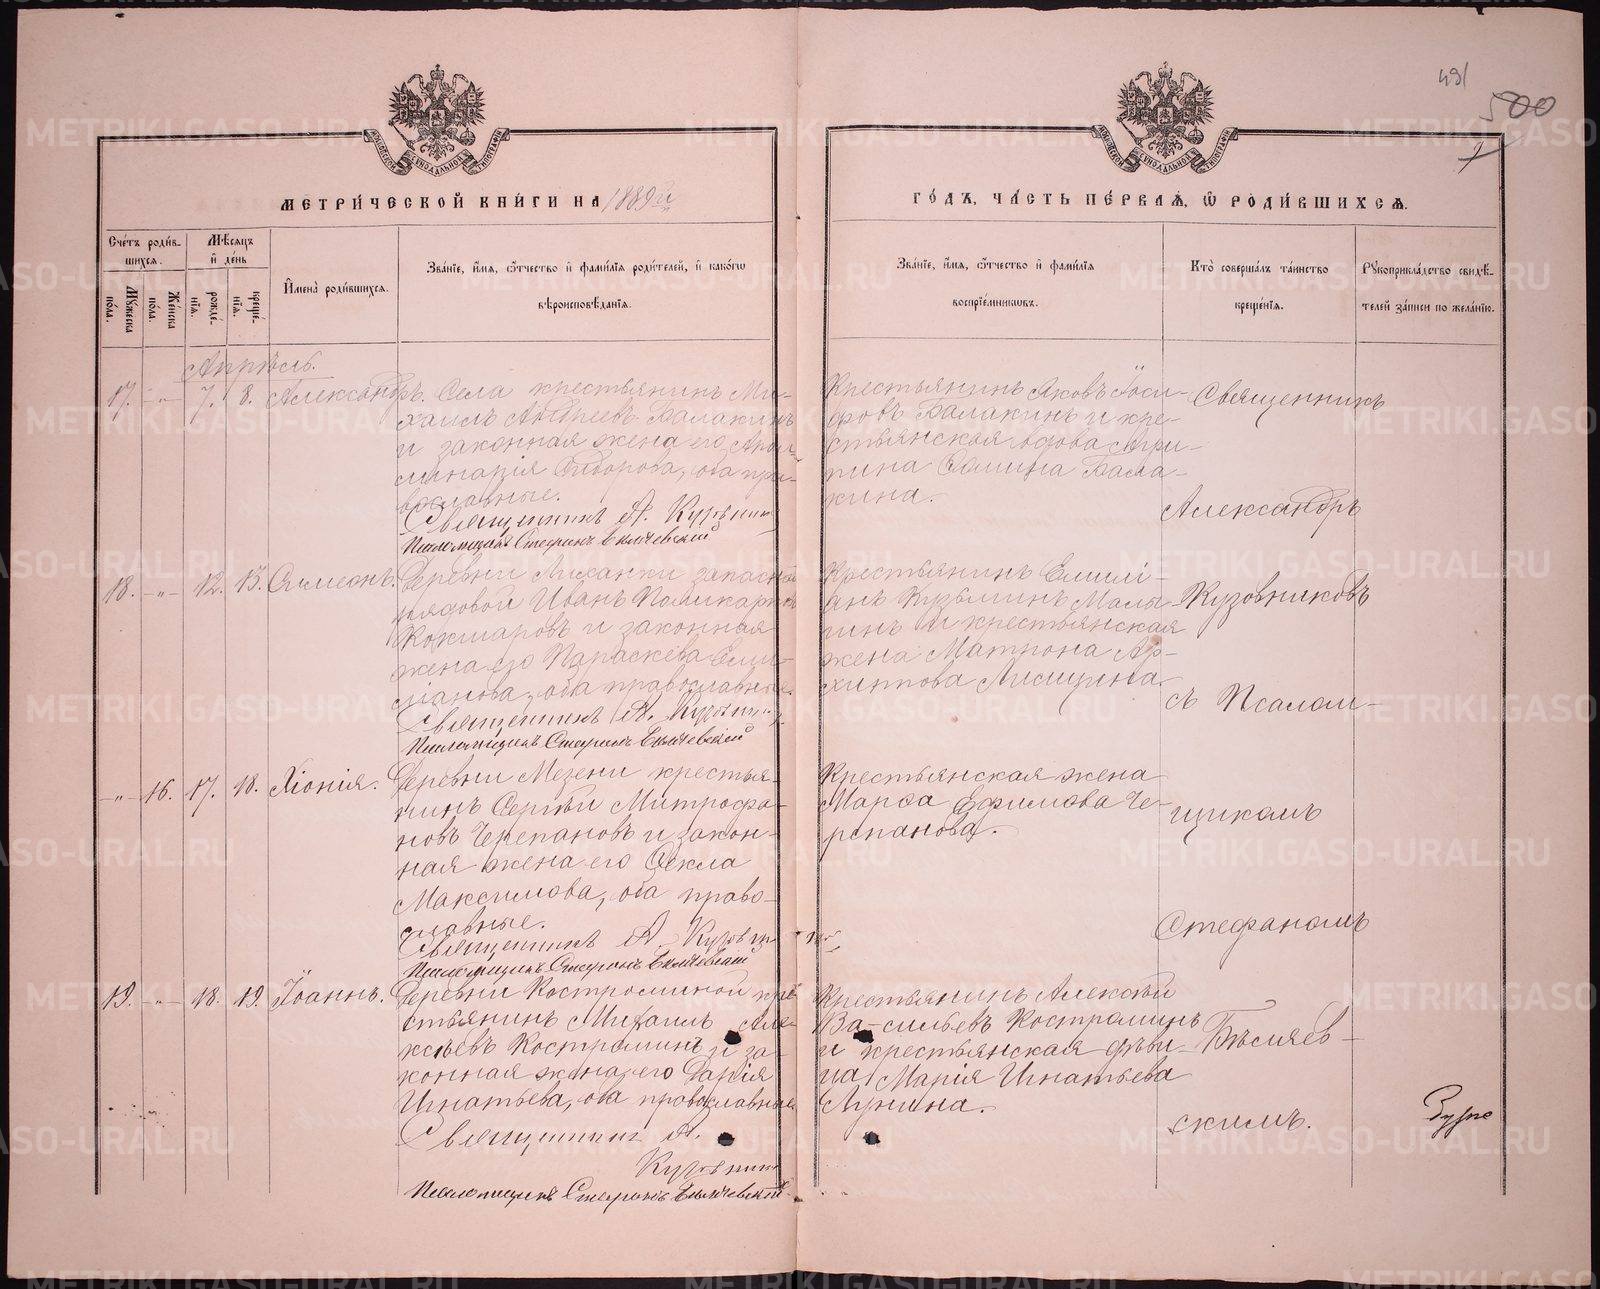 491
500
МЕТРИ́ЧЕСКОЙ КНИ́ГИ НА 1889й
ГО́ДЪ, ЧА́СТЬ ПЕ́РВАѦ, Ѽ РОДИ́ВШИХСѦ.
Сче́тъ роди́в-
шихсѧ.
Мѣ́сѧцъ
и де́нь
Мꙋ́жеска
по́ла.
Же́нска
по́ла.
рожде́-
нїѧ.
креще́-
нїѧ.
И҆мена̀ роди́вшихсѧ.
Зва́нїе, и҆́мѧ, ѻ҆́тчество и҆ фами́лїѧ роди́телей, и҆ како́гѡ
вѣроисповѣ́данїѧ.
Зва́нїе, и҆́мѧ, ѻ҆́тчество и҆ фами́лїѧ
воспрїе́мникѡвъ.
Кто̀ соверша́лъ та́инство
креще́нїѧ.
Рꙋкоприкла́дство свидѣ́-
телей за́писи по жела́нїю.
Апрѣль.
17. -"- 7. 8. Александръ. Села крестьянинъ Ми-
хаилъ Андреевъ Балакинъ
и законная жена его Апол-
линарія Сидорова, оба пра-
вославные.
Священникъ А. Кузовник
Псаломщикъ Стефанъ Бѣляевский
Крестьянинъ Яковъ Іоси-
фовъ Балакинъ и кре-
стьянская вдова Агри-
пина Балa-
кина.
Священникъ
Александръ
18. -"- 12. 13. Сѵмеонъ. Деревни запасной
рядовой Иванъ Поликарповъ
Кокшаровъ и законная
жена его Параскева Емил-
ліанова, оба православные.
Священникъ А. Кузовник
Псаломщикъ Стефанъ Бѣляевский
Крестьянинъ Емилі-
анъ Кузьминъ Малы-
гинъ и крестьянская
жена Матрона Ар-
хиппова
Кузовниковъ
съ Псалом-
-"- 16. 17. 18. Хіонія. Деревни Мезени крестья-
нинъ Сергѣй Митрофа-
новъ Черепановъ и закон-
ная жена его Ѳекла
Максимова, оба право-
славные.
Священникъ А. Кузовник
Псаломщикъ Стефанъ Бѣляевский
Крестьянская жена
Марѳа Ефимова Че-
репанова.
щикомъ
Стефаномъ
19. -"- 18. 19. Іоаннъ. Деревни Костроминой кре-
стьянинъ Михаилъ Але-
ксѣевъ Костроминъ и за-
конная жена его Дарія
Игнатьева, оба православные
Священникъ А.
Кузовник
Псаломщикъ Стефанъ Бѣляевский
Крестьянинъ Алексѣй
Ва-сильевъ Костроминъ
и крестьянская дѣви-
ца Марія Игнатьева
Лунина.
Бѣляев-
скимъ.
METRIKI.GASO-URAL.RU